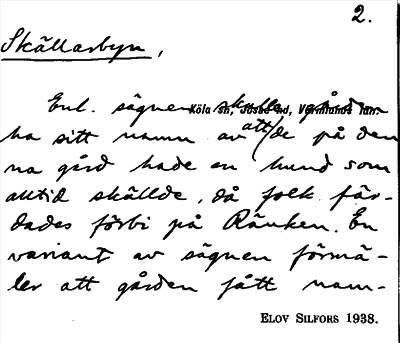 2.
Skällarbyn,
Enl. sägnen skulle gården
Köla sn, Jösse hd, Värmlands län.
ha sitt namn av att de på den
na gård hade en hund som
alltid skällde, då folk fär-
dades förbi på Ränken. En
variant av sägnen förmä-
ler att gården fått nam-
ELOV SILFORS 1938.